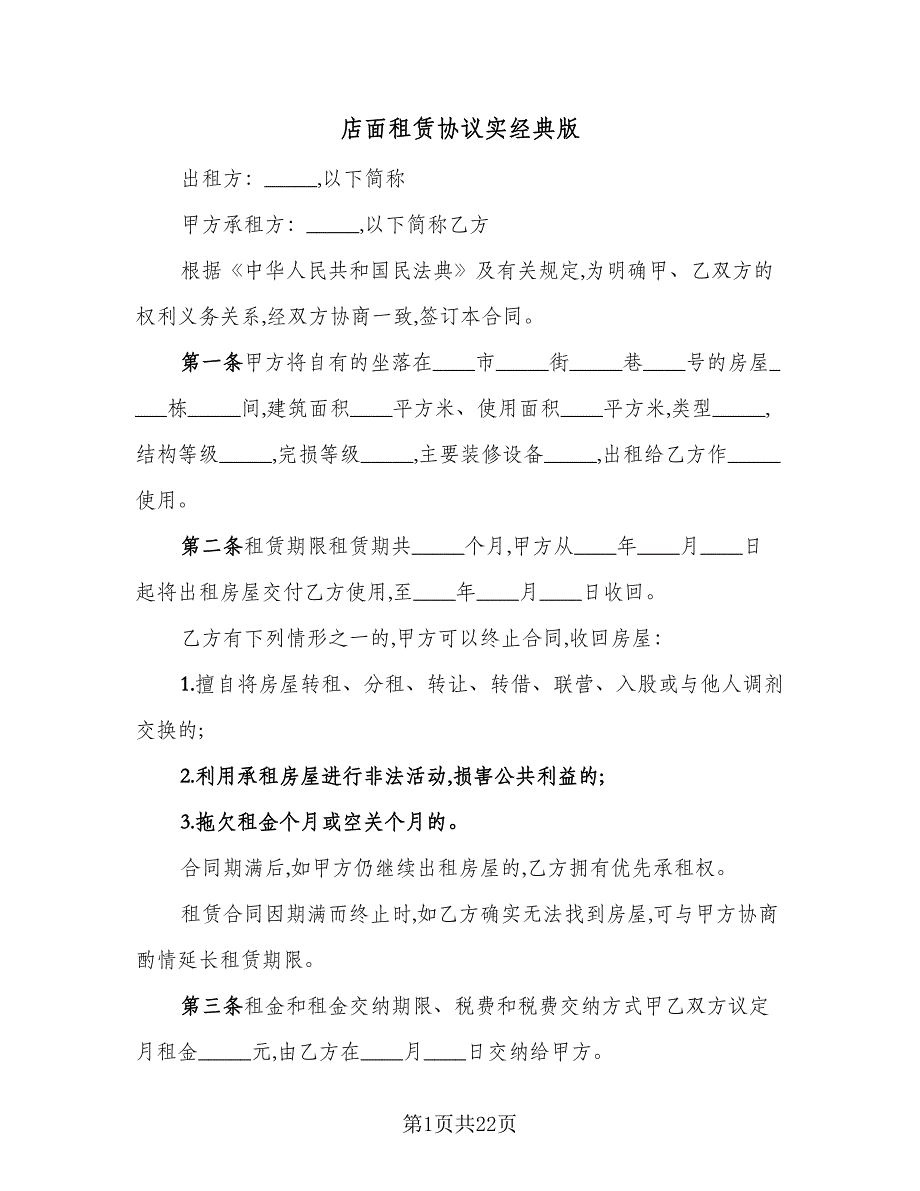 店面租赁协议实经典版
出租方：_____,以下简称
甲方承租方：_____,以下简称乙方
根据《中华人民共和国民法典》及有关规定,为明确甲、乙双方的
权利义务关系,经双方协商一致,签订本合同。
第一条甲方将自有的坐落在____市_____街_____巷____号的房屋_
___栋_____间,建筑面积____平方米、使用面积____平方米,类型_____,
结构等级_____,完损等级_____,主要装修设备_____,出租给乙方作_____
使用。
第二条租赁期限租赁期共_____个月,甲方从____年____月____日
起将出租房屋交付乙方使用,至____年____月____日收回。
乙方有下列情形之一的,甲方可以终止合同,收回房屋：
1.擅自将房屋转租、分租、转让、转借、联营、入股或与他人调剂
交换的;
2.利用承租房屋进行非法活动,损害公共利益的;
3.拖欠租金个月或空关个月的。
合同期满后,如甲方仍继续出租房屋的,乙方拥有优先承租权。
租赁合同因期满而终止时,如乙方确实无法找到房屋,可与甲方协商
酌情延长租赁期限。
第三条租金和租金交纳期限、税费和税费交纳方式甲乙双方议定
月租金_____元,由乙方在____月____日交纳给甲方。
第1页共22页